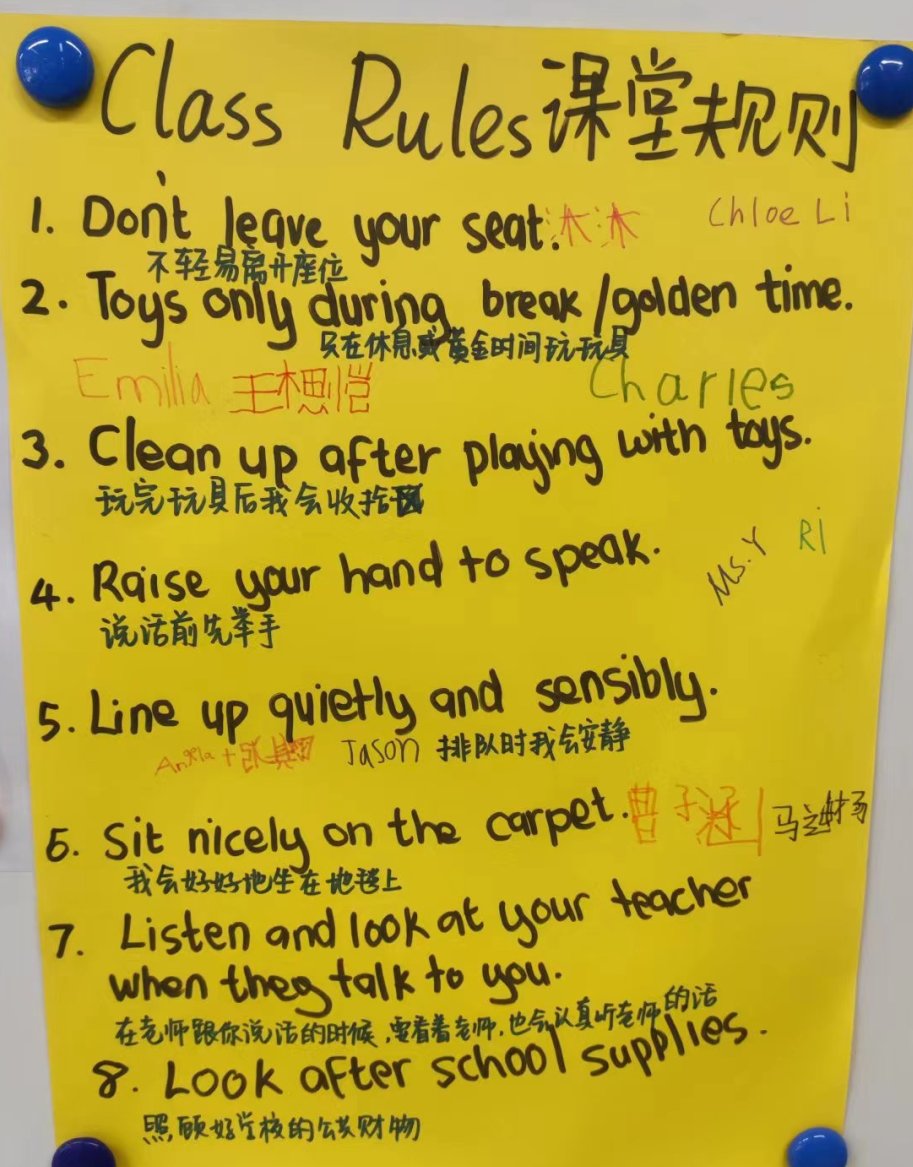 Class Rules课堂规则
1. Don't leave your seat. 沐沐 Chloe Li
不轻易离开座位
2. Toys only during break/golden time.
只在休息或黄金时间玩玩具
Emilia 王思恺 Charles
3. Clean up after playing with toys.
玩完玩具后我会收拾
Ms.Y Ri
4. Raise your hand to speak.
说话前先举手
5. Line up quietly and sensibly.
Angela + Jason 排队时我会安静
6. Sit nicely on the carpet. 曹子涵
我会好好地坐在地毯上
7. Listen and look at your teacher
when they talk to you.
在老师跟你说话的时候,要看着老师,也会认真听老师的话
8. Look after school supplies.
照顾好学校的公共财物